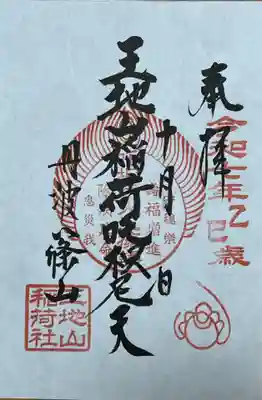 奉拝
令和七年乙巳歳
十月
日
王地山稲荷吒枳尼天
丹波篠山
王地山
稲荷社